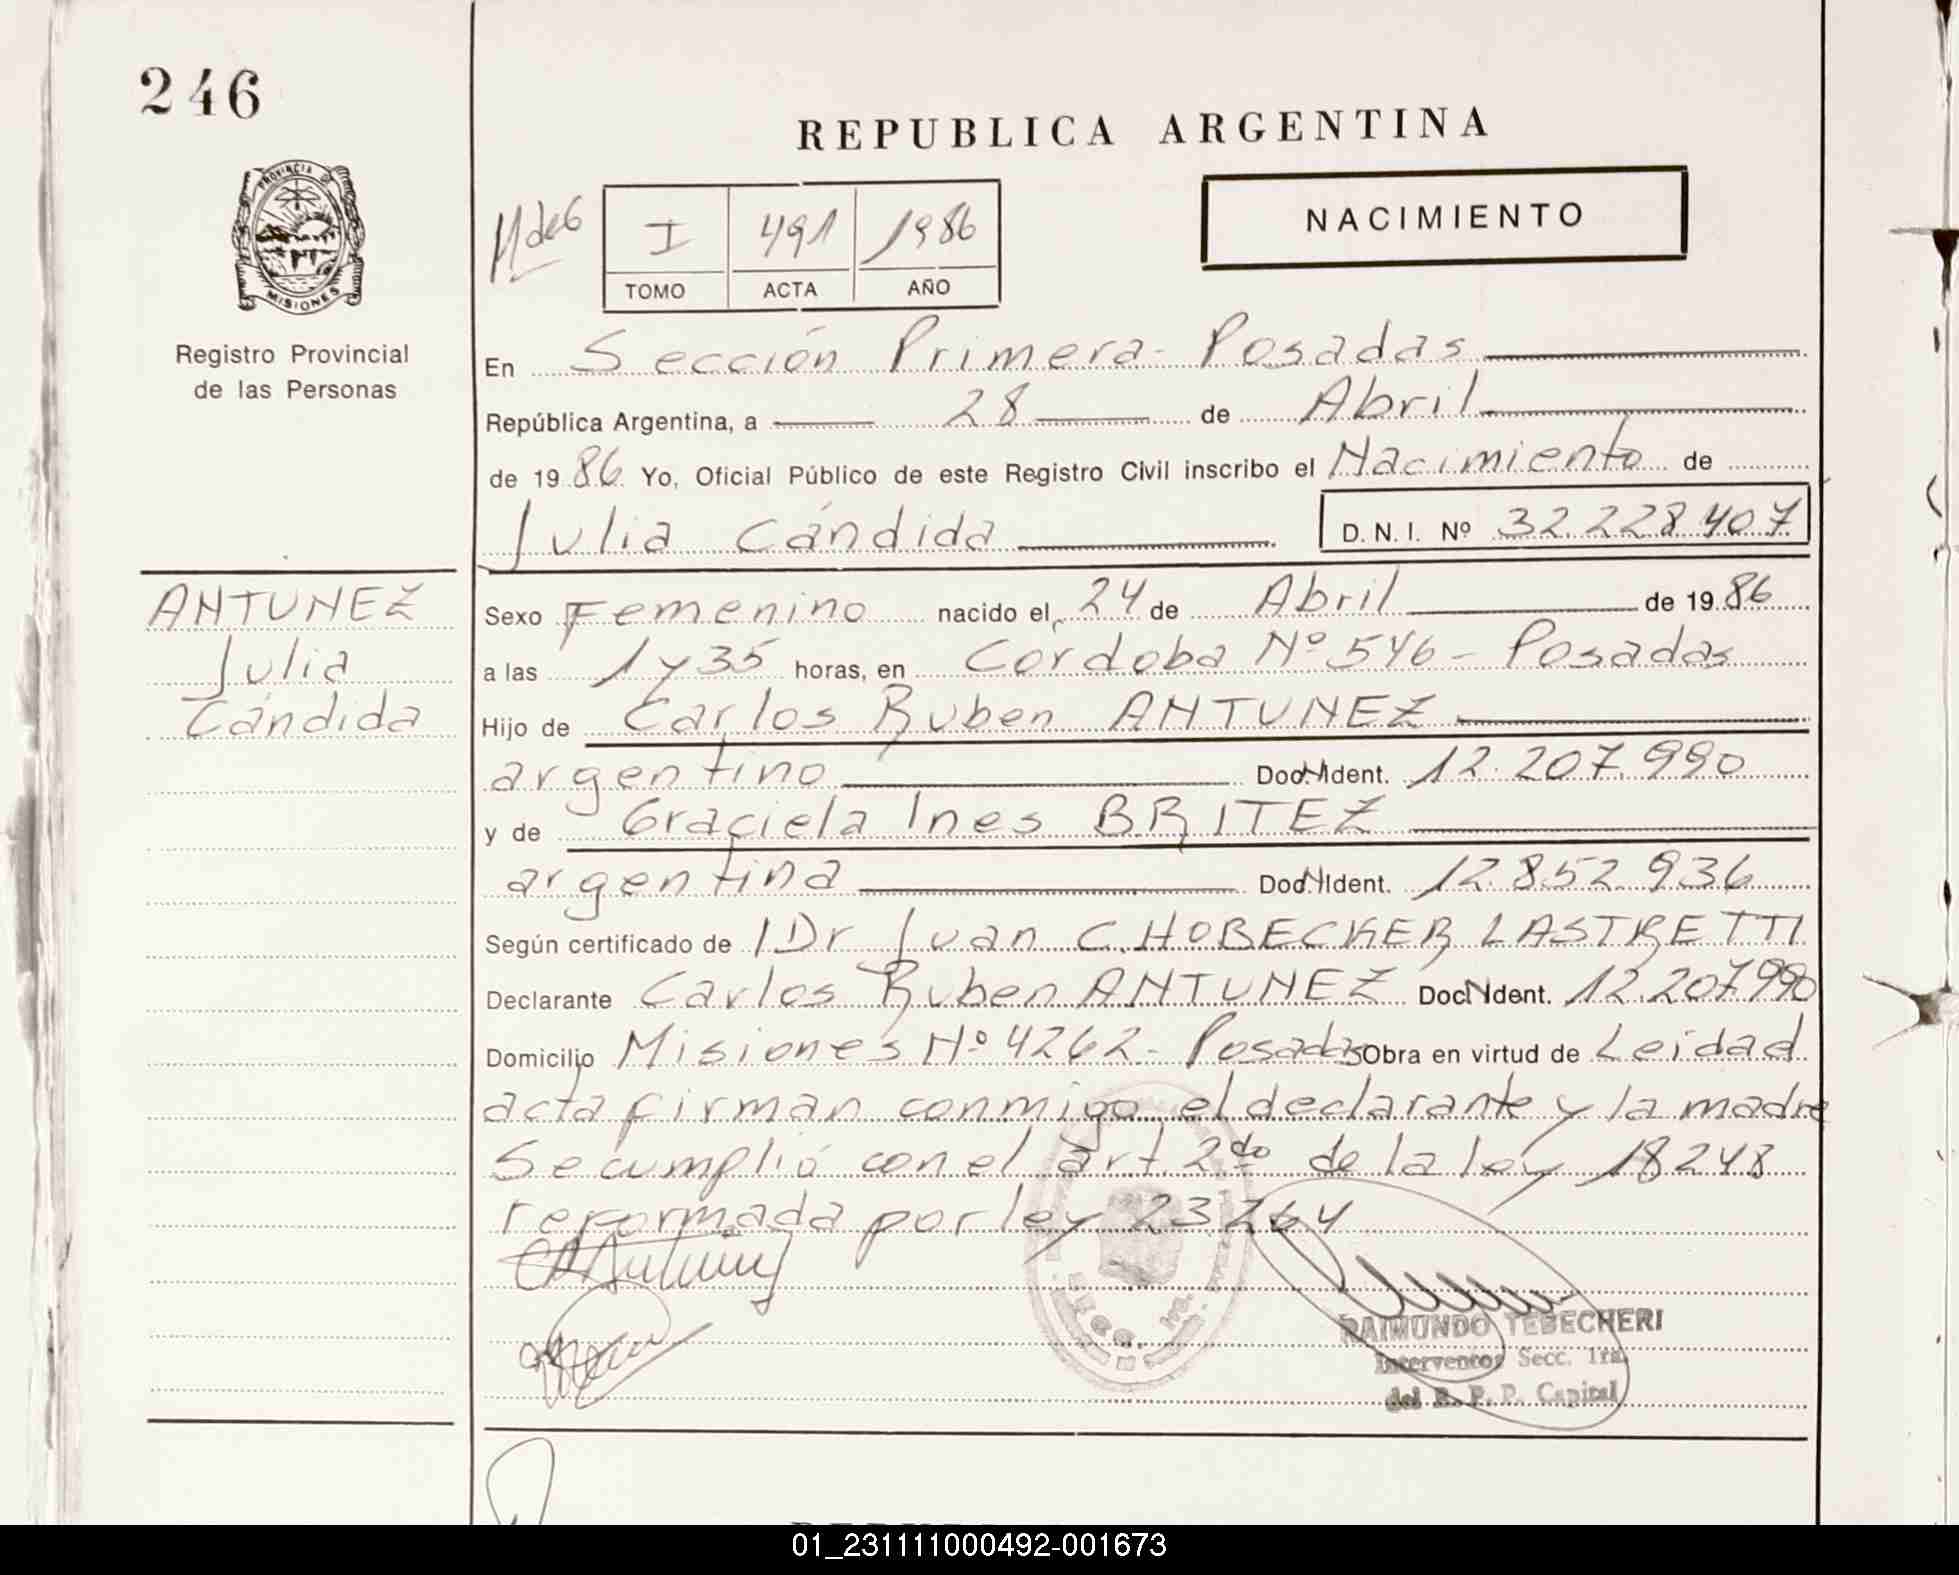 246
REPUBLICA ARGENTINA
PROVINCIA DE
MISIONES
Registro Provincial
de las Personas
I 491 1986
TOMO ACTA AÑO
NACIMIENTO
En Sección Primera - Posadas
República Argentina, a 28 de Abril
de 1986 Yo, Oficial Público de este Registro Civil inscribo el Nacimiento de
Julia Cándida D. N. I. Nº 32.228.407
ANTUNEZ
Julia
Cándida
Sexo Femenino nacido el 24 de Abril de 1986
a las 1 y 35 horas, en Cordoba Nº 546 - Posadas
Hijo de Carlos Ruben ANTUNEZ
argentino Doc. N Ident. 12.207.990
y de Graciela Ines BRITEZ
argentina Doc. N Ident. 12.852.936
Según certificado de Dr Juan C. HOBECKER LASTRETTI
Declarante Carlos Ruben ANTUNEZ Doc N Ident. 12.207.990
Domicilio Misiones Nº 4262 - Posadas Obra en virtud de Leidad
acta firman conmigo el declarante y la madre
Se cumplió con el art. 2do de la ley 18248
reformada por ley 23264
RAIMUNDO TEBECHERI
Interventor Secc. 1ra.
del R. P. P. Capital
01_231111000492-001673